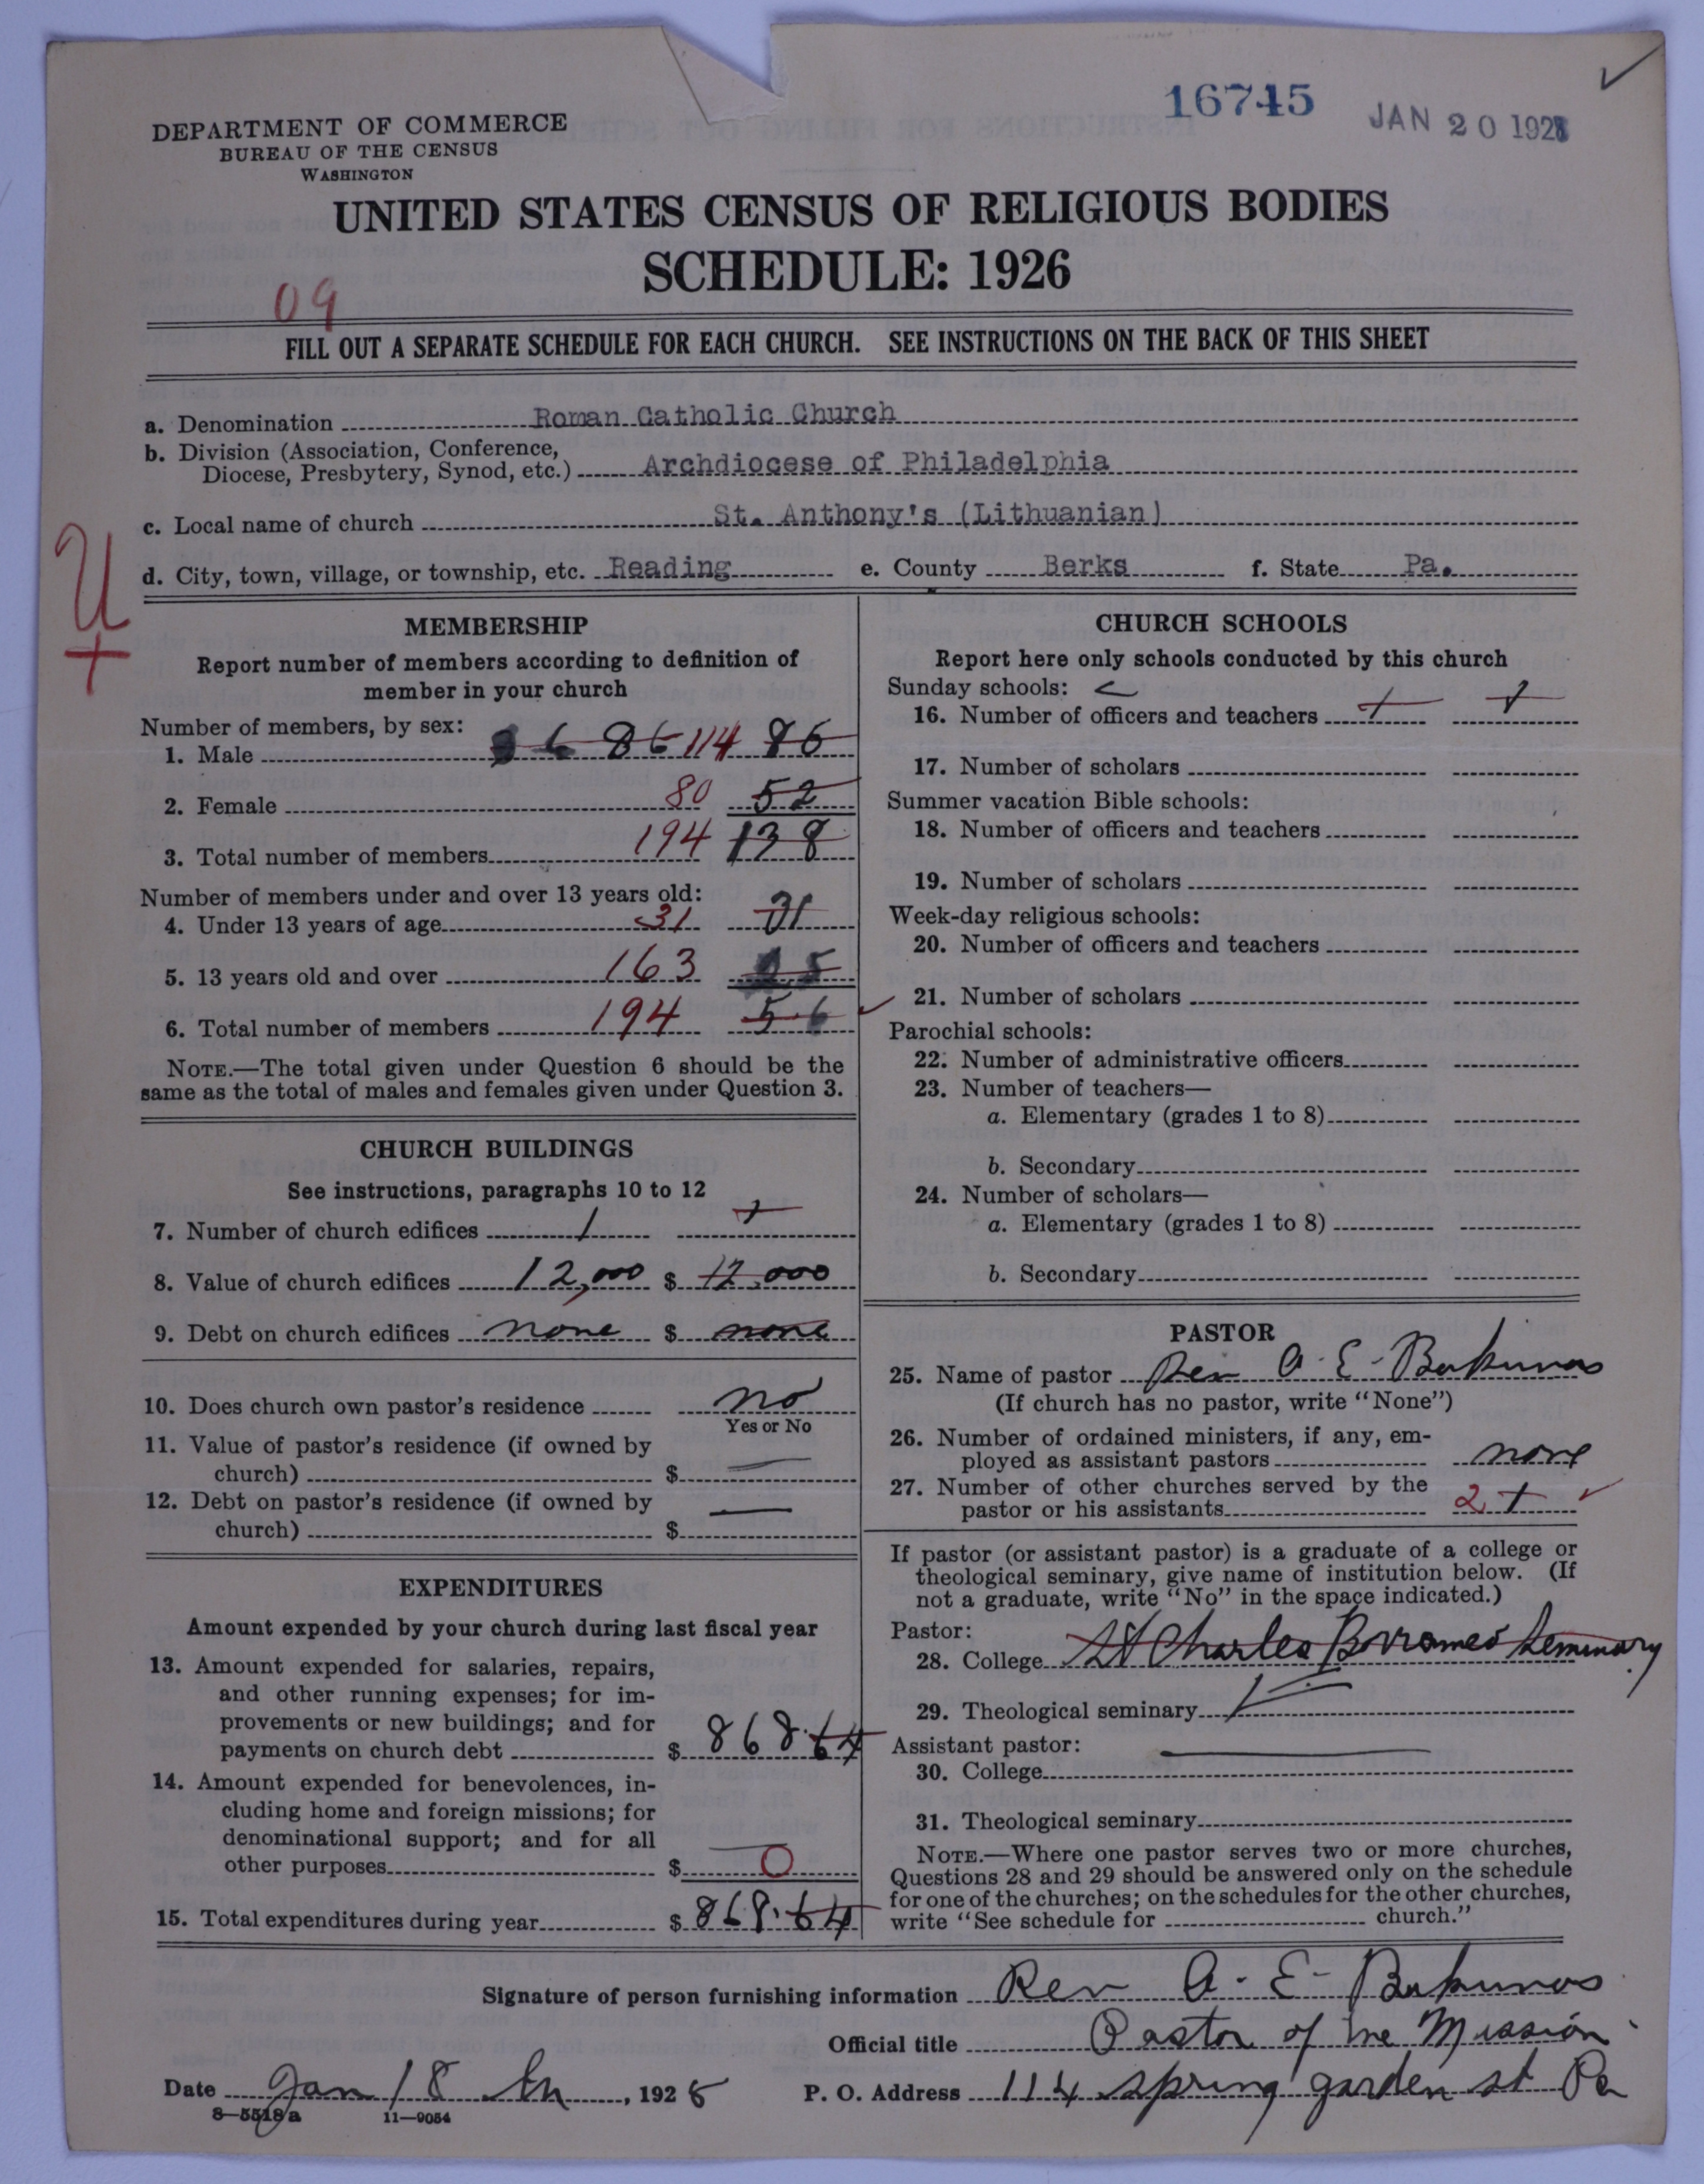 16745
JAN 20 1928
DEPARTMENT OF COMMERCE
BUREAU OF THE CENSUS
WASHINGTON
UNITED STATES CENSUS OF RELIGIOUS BODIES
SCHEDULE: 1926
09
FILL OUT A SEPARATE SCHEDULE FOR EACH CHURCH. SEE INSTRUCTIONS ON THE BACK OF THIS SHEET
a. Denomination Roman Catholic Church
b. Division (Association, Conference,
Diocese, Presbytery, Synod, etc.) Archdiocese of Philadelphia
c. Local name of church St. Anthony's (Lithuanian)
d. City, town, village, or township, etc. Reading e. County Berks f. State Pa.
MEMBERSHIP
Report number of members according to definition of
member in your church
Number of members, by sex:
1. Male 86 114 86
2. Female 80 52
3. Total number of members 194 138
Number of members under and over 13 years old:
4. Under 13 years of age 31 31
5. 13 years old and over 163 25
6. Total number of members 194 56
NOTE.—The total given under Question 6 should be the
same as the total of males and females given under Question 3.
CHURCH BUILDINGS
See instructions, paragraphs 10 to 12
7. Number of church edifices 1 1
8. Value of church edifices 12,000 $ 12,000
9. Debt on church edifices none $ none
10. Does church own pastor's residence no
Yes or No
11. Value of pastor's residence (if owned by
church) $ —
12. Debt on pastor's residence (if owned by
church) $ —
EXPENDITURES
Amount expended by your church during last fiscal year
13. Amount expended for salaries, repairs,
and other running expenses; for im-
provements or new buildings; and for
payments on church debt $ 868.64
14. Amount expended for benevolences, in-
cluding home and foreign missions; for
denominational support; and for all
other purposes $ 0
15. Total expenditures during year $ 868.64
CHURCH SCHOOLS
Report here only schools conducted by this church
Sunday schools:
16. Number of officers and teachers 1 1
17. Number of scholars
Summer vacation Bible schools:
18. Number of officers and teachers
19. Number of scholars
Week-day religious schools:
20. Number of officers and teachers
21. Number of scholars
Parochial schools:
22. Number of administrative officers
23. Number of teachers—
a. Elementary (grades 1 to 8)
b. Secondary
24. Number of scholars—
a. Elementary (grades 1 to 8)
b. Secondary
PASTOR
25. Name of pastor Rev A. E. Bukunas
(If church has no pastor, write "None")
26. Number of ordained ministers, if any, em-
ployed as assistant pastors none
27. Number of other churches served by the
pastor or his assistants 2 1
If pastor (or assistant pastor) is a graduate of a college or
theological seminary, give name of institution below. (If
not a graduate, write "No" in the space indicated.)
Pastor:
28. College St Charles Borromeo Seminary
29. Theological seminary
Assistant pastor:
30. College
31. Theological seminary
NOTE.—Where one pastor serves two or more churches,
Questions 28 and 29 should be answered only on the schedule
for one of the churches; on the schedules for the other churches,
write "See schedule for church."
Signature of person furnishing information Rev A. E. Bukunas
Official title Pastor of the Mission
Date Jan 18, 1928 P. O. Address 114 Spring garden st Pa
8—5518a 11—9054